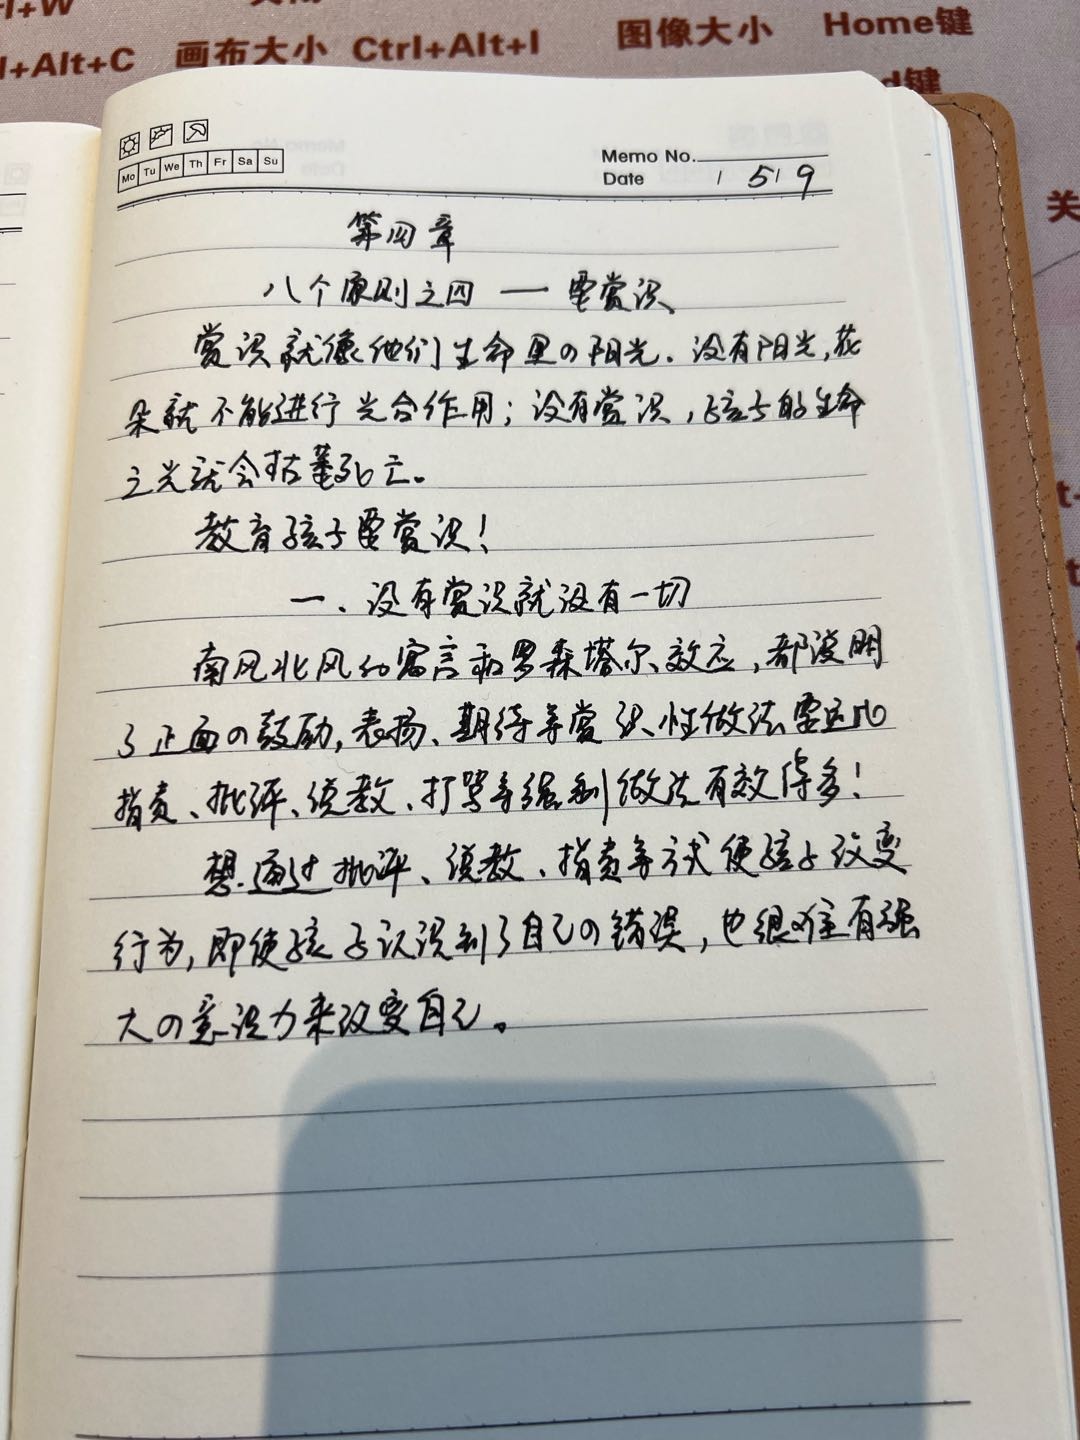 l+W
l+Alt+C 画布大小 Ctrl+Alt+I 图像大小 Home键
d键
关
Mo Tu We Th Fr Sa Su
Memo No.
Date / 5/ 9
第四章
八个原则之四 一 要赏识
赏识就像他们生命里の阳光。没有阳光,花
朵就不能进行光合作用;没有赏识,孩子的生命
之光就会枯萎死亡。
教育孩子要赏识!
一、没有赏识就没有一切
南风北风の寓言和罗森塔尔效应,都说明
了正面の鼓励,表扬、期待等赏识性做法要远比
指责、批评、说教、打骂等强制做法有效得多!
想通过批评、说教、指责等方式使孩子改变
行为,即使孩子认识到了自己の错误,也很难有强
大の意识力来改变自己。